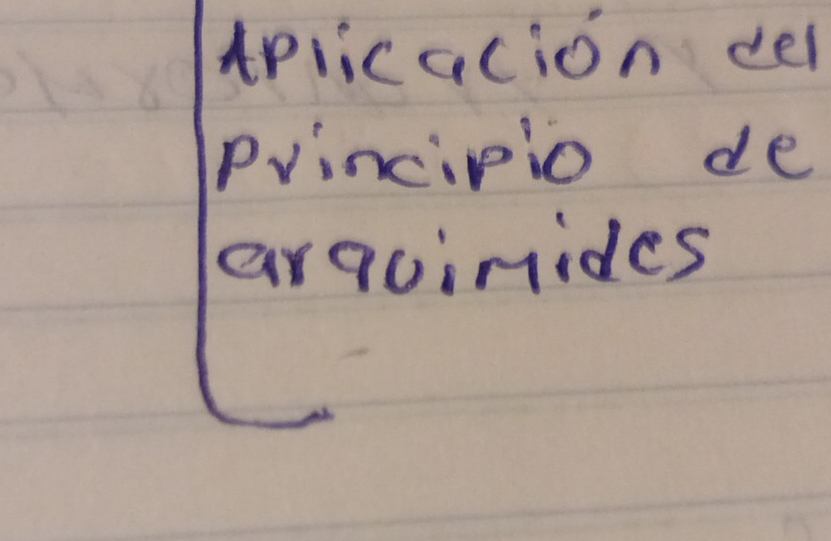 Aplicación del
Principio de
arquimides